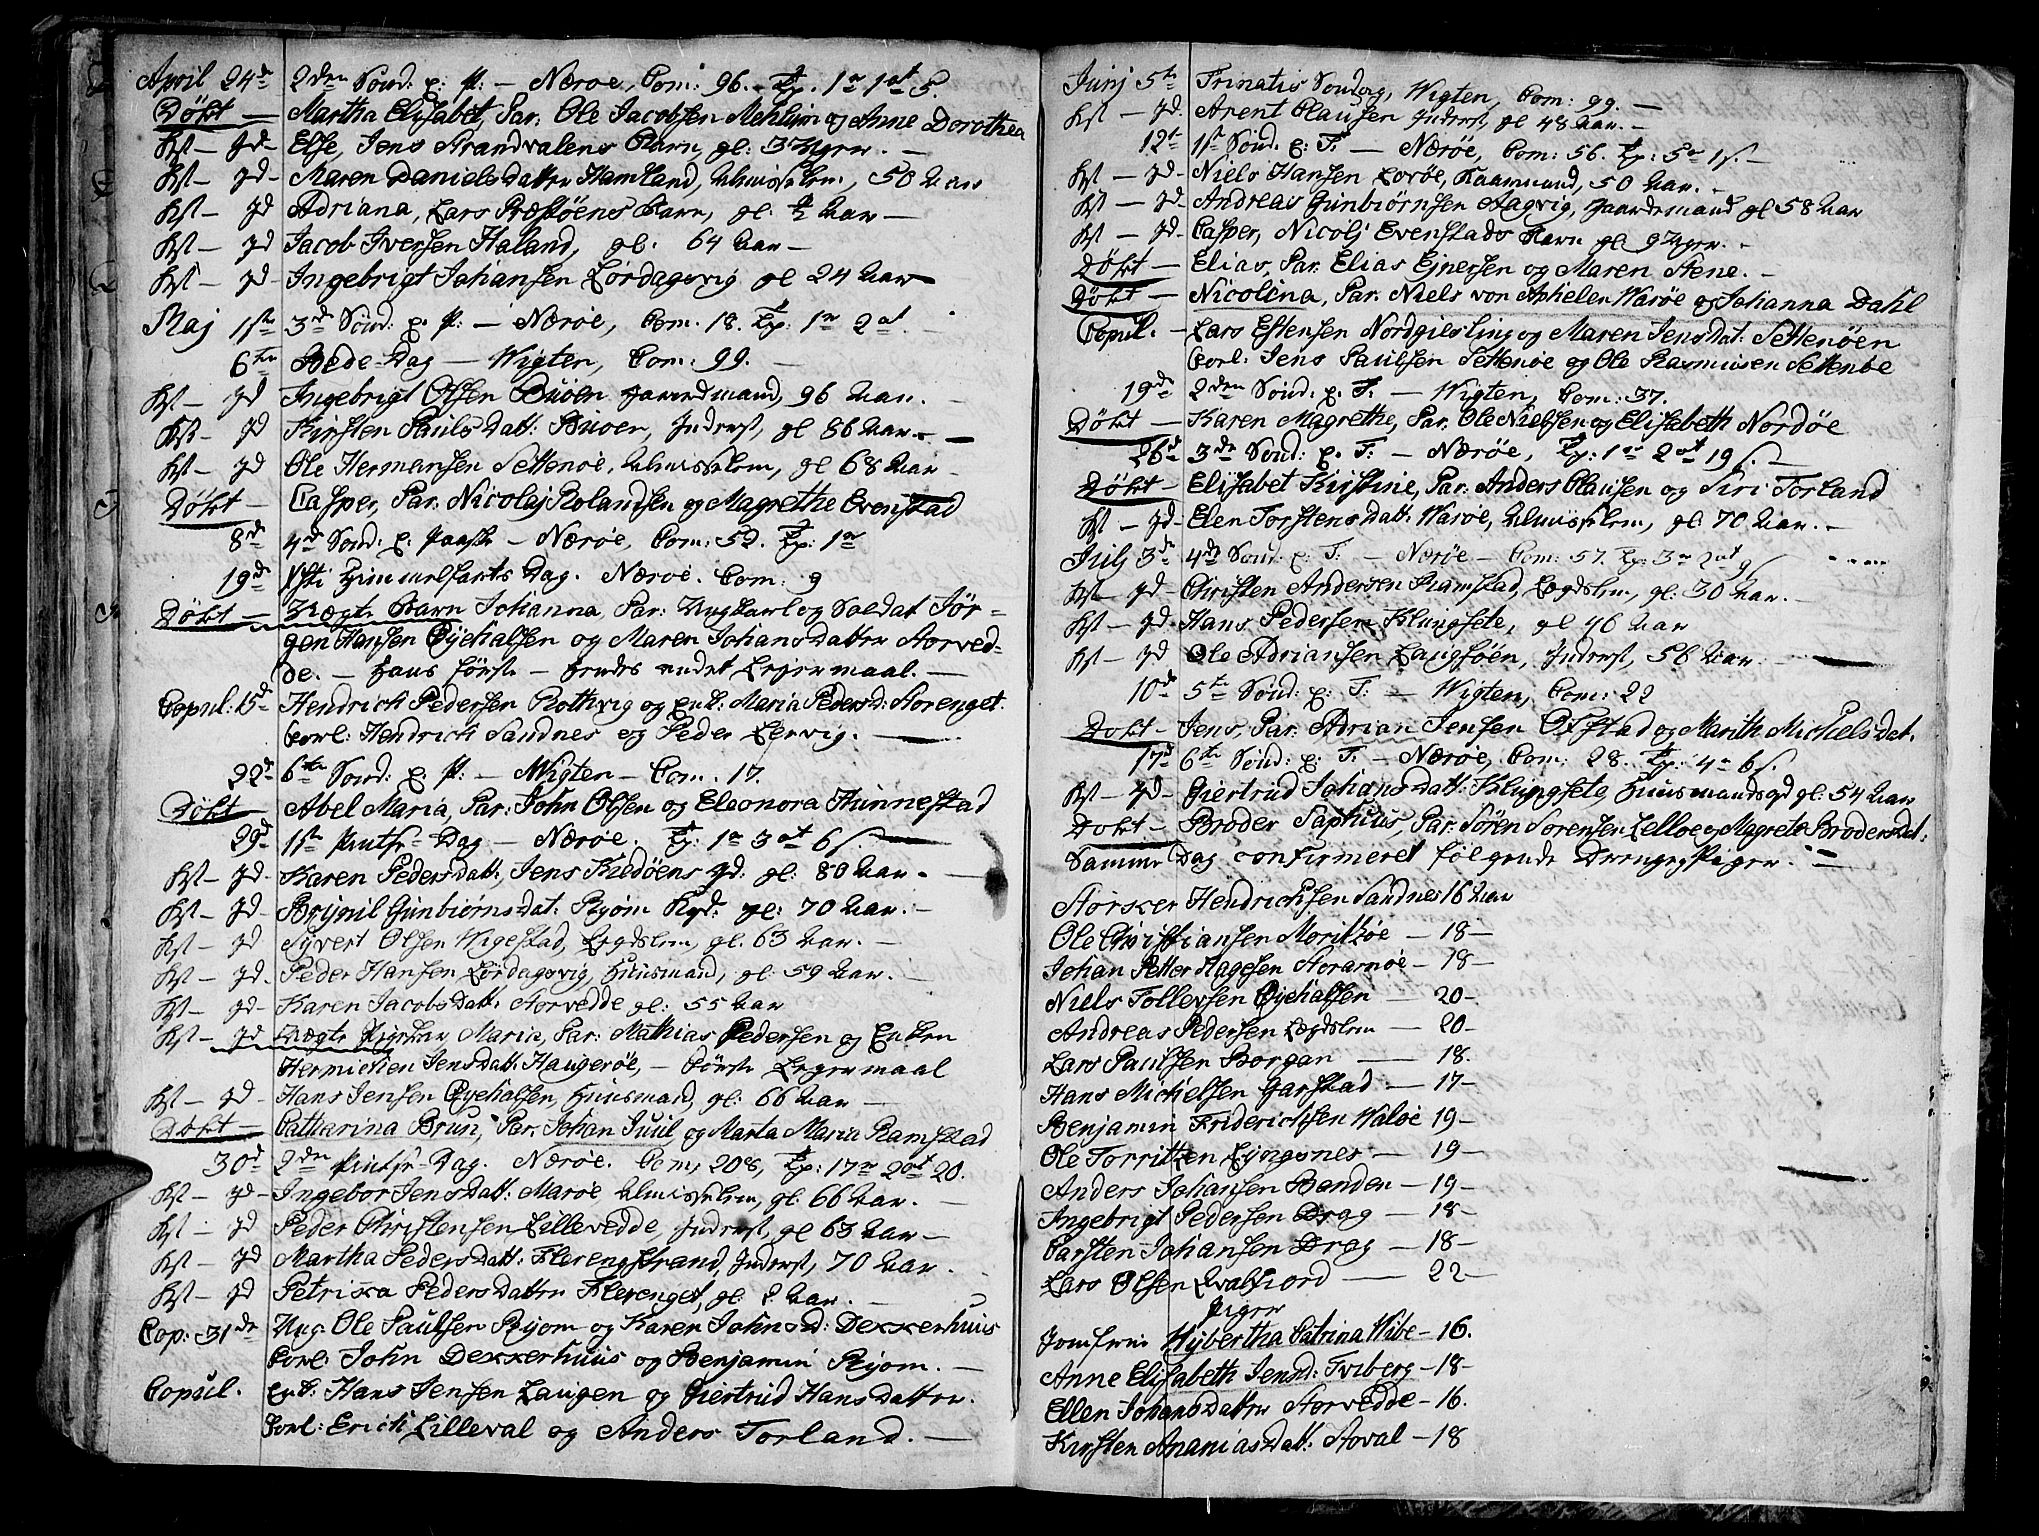 April 24de 2den Sönd: p: P: — Næröe, Com: 96. Tp. 1 r 1 ort 5.
Döbt — Martha Elisabet, Par. Ole Jacobsen Mehlum og Anne Dorothea
Kst — Jd — Else, Jens Strandvalens Barn, gl: 3 Uger. —
Kst — Jd — Maren Daniels Datter Hamland, Almisselem, 58 Aar
Kst — Jd Adriana, Lars Præstöens Barn, gl: ½ Aar —
Kst — Jd Jacob Iversen Haland, gl: 64 Aar —
Kst — Jd — Ingebrigt Johansen Lördagsvig gl 24 Aar
Maj 1ste 3de Sönd: p: P: — Næröe, Com. 18. Tp: 1 r 2 ort
6te Bede-Dag — Wigten, Com: 99. —
Kst — Jd Ingebrigt Olsen Buöen Gaardmand, 96 Aar.
Kst — Jd Kirsten Pauls Datt: Buoen, Inderst, gl 86 Aar. —
Kst — Jd Ole Hermansen Settenöe, Almisselem, gl 68 Aar
Döbt — Casper, Par. Nicolaj Rolandsen og Magrethe Evenstad
8de 4de Sönd: p: Paaske — Næröe, Com: 52. Tp: 1 r
19de Xsti Himmelfarts Dag. Næröe. Com: 9
Döbt — Uægte Barn Johanna, Par: Ungkarl og Soldat Jör-
gen Hansen Öjehalsen og Maren Johans Datter Storved-
de. — Hans förste — Hendes andet Lejermaal. —
Copul: 15de Hendrich Pedersen Rothvig og Enk: Maria Pedersd: Storenget.
Forl: Hendrich Sandnes og Peder Lervig. —
22de 6te Sönd: p: P: — Wigten — Com. 17.
Döbt Abel Maria, Par: John Olsen og Eleonora Hunnestad
29de 1ste Pintse-Dag — Næröe. Tp: 1 r 3 ort 6 s. —
Kst — Jd — Karen Peders Datt: Jens Kildöens Jd. gl: 80 Aar.
Kst — Jd — Brynil Gunbiörns Dat: Ryom Kgd: gl: 70 Aar. —
Kst — Jd Syvert Olsen Wigestad, Legdslem, gl: 63 Aar. —
Kst — Jd — Peder Hansen Lördagsvig, Huusmand, gl: 59 Aar. —
Kst — Jd — Karen Jacobs Datt: Storvedde gl: 55 Aar
Kst — Jd Uægte Pigebarn Maria, Par: Mathias Pedersen og Enken
Hermichen Jens Datt: Haugeröe, — Förste Lejermaal
Kst — Jd — Hans Jensen Öjehalsen, Huusmand, gl: 66 Aar —
Döbt — Catharina Brun, Par. Johan Juul og Marta Maria Ramstad
30te 2den Pintse-Dag. Næröe. Com, 208, Tp: 17 r 2 ort 20.
Kst — Jd — Ingebor Jens Datt: Maröe Almisselem, gl: 66 Aar. —
Kst — Jd Peder Christensen Lillevedde, Inderst, gl 63 Aar —
Kst — Jd Martha Peders Datt: Flerengstrand, Inderst, 70 Aar.
Kst — Jd Petricka Peders Datter Flerenget, gl. 2 Aar. —
Cop: 31de Ung. Ole Paulsen Ryom og Karen Johnsd: Dekkerhuus
Forl: John Dekkerhuus og Benjamin Ryom. —
Copul. Enk: Hans Jensen Laugen og Giertrud Hans Datter.
Forl: Erich Lilleval og Anders Torland. —
Junj 5te Trinatis Sondag, Wigten, Com: 99. —
Kst — Jd. Arent Clausen Inderst, gl 48 Aar. —
12te 1ste Sönd: p: T: — Næröe, Com: 56. Tp: 5 r 1 s. —
Kst — Jd — Niels Hansen Loröe, Kaarmand, 50 Aar. —
Kst — Jd — Andreas Gunbiörnsen Aagvig, Gaardmand gl 58 Aar
Kst — Jd — Casper, Nicolj Evenstads Barn gl 9 Uger. —
Döbt — Elias, Par. Elias Ejnersen og Maren Stene. —
Döbt — Nicolina, Par. Niels von Aphelen Waröe og Johanna Dahl
Copul. — Lars Estensen Nordgiesling og Maren Jens Dat: Settenöen
Forl: Jens Paulsen Settenöe og Ole Rasmusen Settenöe
19de 2den Sönd: p: T: — Wigten, Com: 37.
Döbt — Karen Magrethe, Par. Ole Nielsen og Elisabeth Nordöe
26de 3de Sönd: p. T: — Næröe, Tp: 1 r 2 ort 19 s. —
Döbt — Elisabet Kirstine, Par: Anders Clausen og Siri Torland
Kst — Jd — Elen Torstens Datt: Waröe, Almisselem, gl: 70 Aar. —
Julj 3de 4de Sönd: p: T: — Næröe — Com: 57. Tp: 3 r 2 ort 9 s
Kst — Jd — Christen Andersen Ramstad, Legdslem, gl: 30 Aar. —
Kst — Jd Hans Pedersen Klungsete, gl 46 Aar
Kst — Jd Ole Adriansen Laugsöen, Inderst, 56 Aar. —
10de 5te Sönd: p: T: — Wigten, Com: 22
Döbt — Jens, Par. Adrian Jensen Ofstad og Marith Michels Dat.
17de 6te Sönd: p: T. — Næröe, Com: 28. Tp: 4 r 6 s.
Kst — Jd — Giertrud Johans Datt: Klungsete, Huusmands Jd gl: 54 Aar
Döbt — Broder Saphuus, Par. Sören Sörensen Lelloe og Magrete Broders Dat:
Samme Dag confirmeret fölgende Drenge og Piger. —
Storker Hendrichsen Sandnes 16 Aar
Ole Christiansen Moritzöe — 18 —
Johan Petter Hagesen Storarnöe — 18 —
Niels Tollevsen Öjehalsen — 20 —
Andreas Pedersen Legdslem — 20 —
Lars Paulsen Borgan — 18.
Hans Michelsen Garstad — 17 —
Benjamin Friderichsen Waloe 19 —
Ole Torritzen Lyngsnes — 19 —
Anders Johansen Banden — 19 —
Ingebrigt Pedersen Drag — 18 —
Carsten Johansen Drag — 18 —
Lars Olsen Qvalfiord — 22 —
Piger
Jomfrue Hybertha Catrina Wibe — 16.
Anne Elisabeth Jensd: Tviberg — 18 —
Ellen Johans Datter Storvedde — 16.
Kirsten Ananias Datt: Aoval — 18